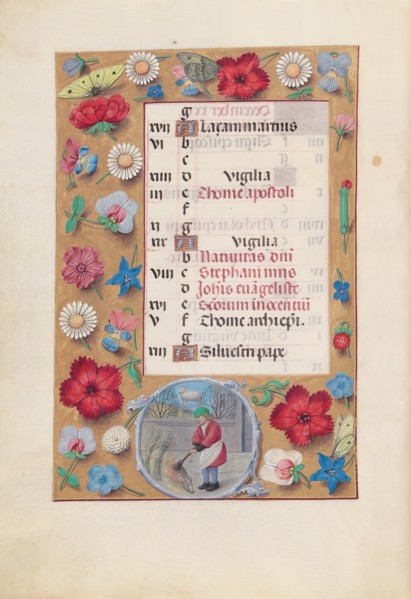 g
xvii A Lazari martiris
vi b
c
xiiii d Vigilia
iii e Thome apostoli
f
xi g
xix A Vigilia
b Natiuitas dni
viii c Stephani mris
d Johis euãgeliste
xvi e Scorum inocentiũ
v f Thome archiepi.
g
xiii A Siluestri pape